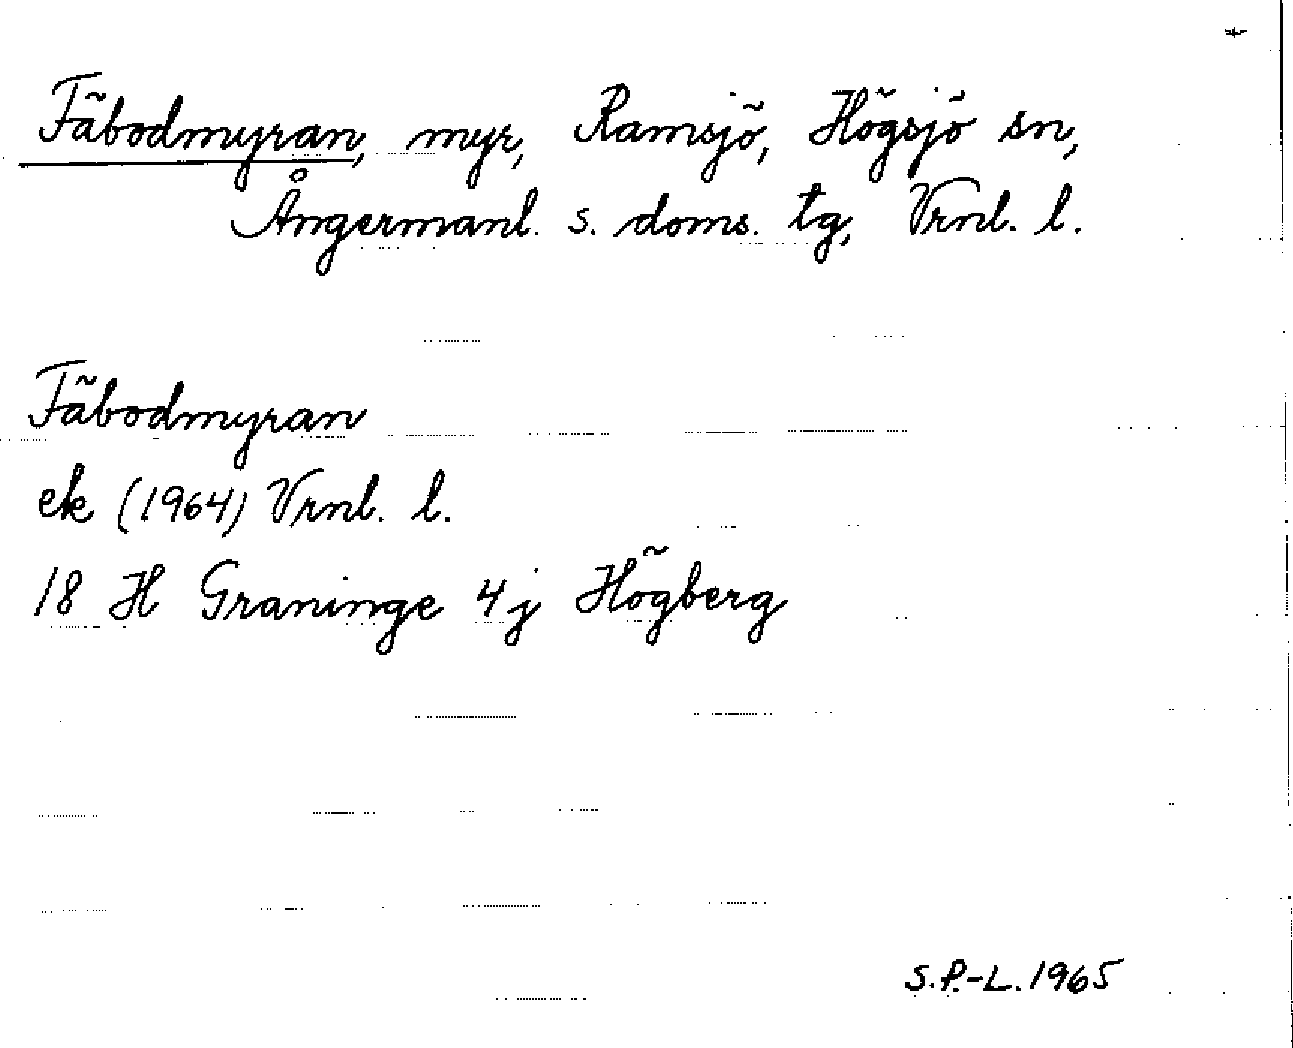 Fäbodmyran, myr, Ramsjö, Högsjö sn,
Ångermanl. s. doms. tg, Vrnl. l.
Fäbodmyran
ek (1964) Vrnl. l.
18 H Graninge 4j Högberg
S.P.-L. 1965